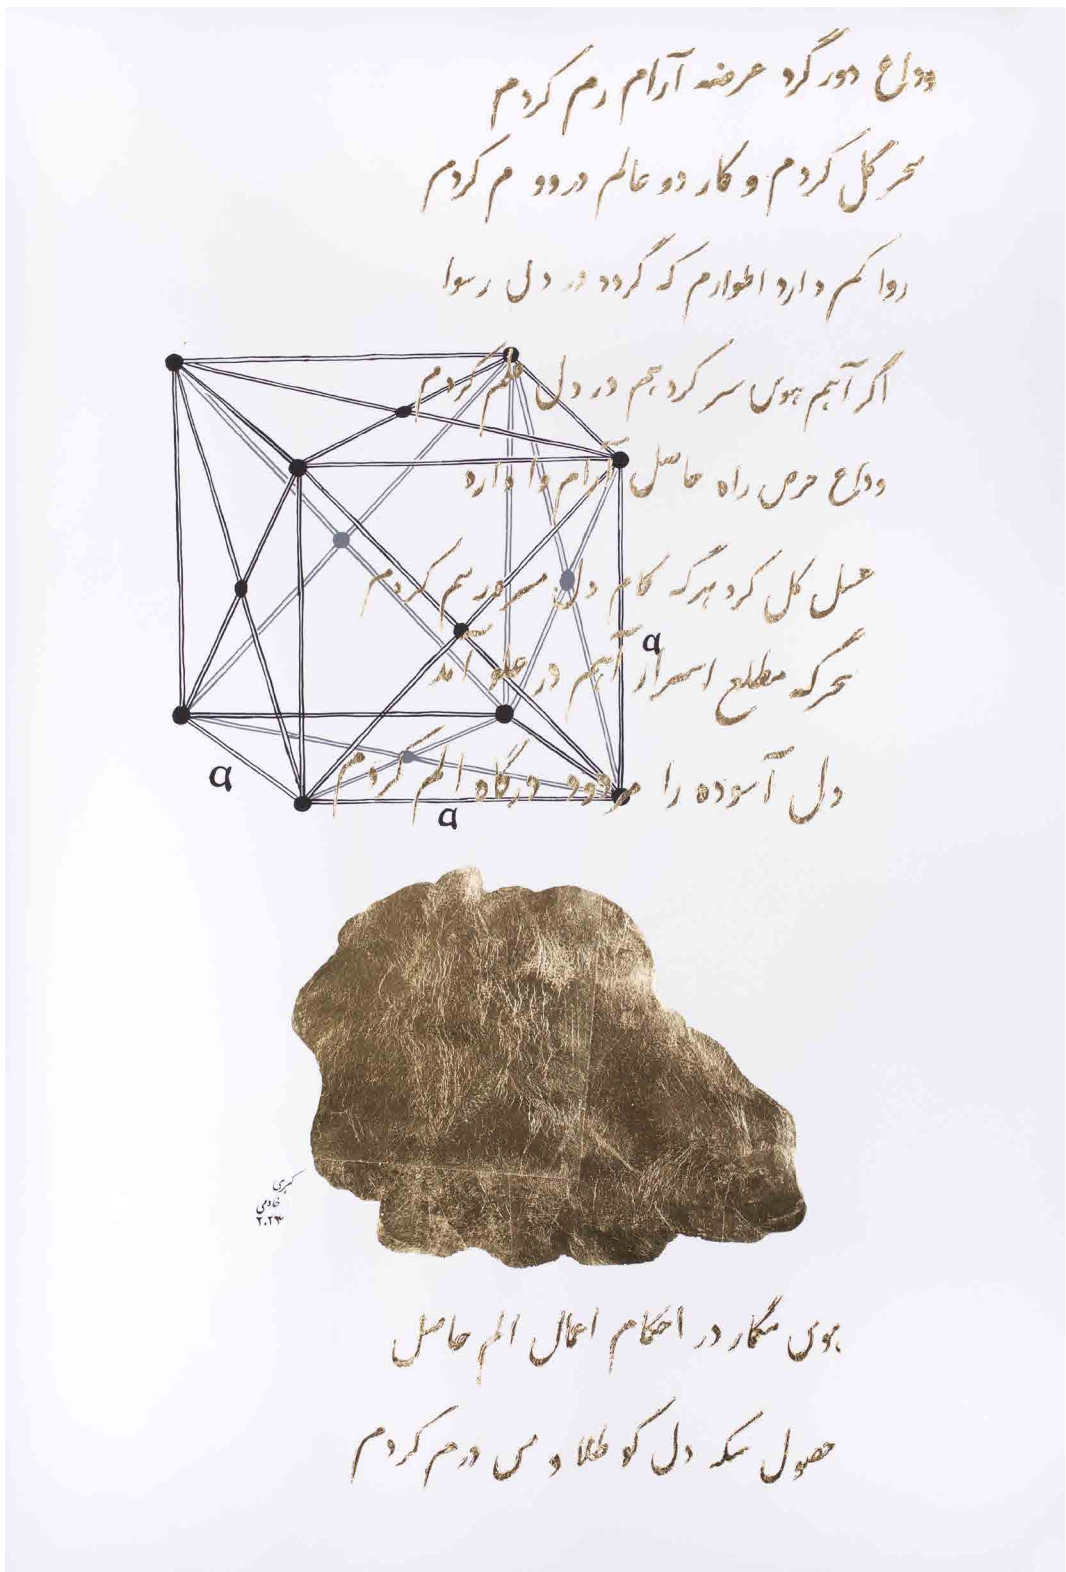 وداع دور گرد عرصه آرام رم کردم
سحر گل کردم و کار دو عالم در دو م کردم
روا کم دارد اطوارم که گردد در دل رسوا
اگر آهم هوس سر کرد هم در دل علم کردم
وداع حرص راه حاصل آرام وا دارد
عسل گل کرد هر گه کام دل مسرور سم کردم
a
سحر گه مطلع اسرار آهم در علو آمد
دل آسوده را مردود درگاه الم کردم
a
a
کبری
خادمی
۲۰۲۳
هوس مگمار در احکام اعمال الم حاصل
حصول سکه دل کو طلا و مس درم کردم